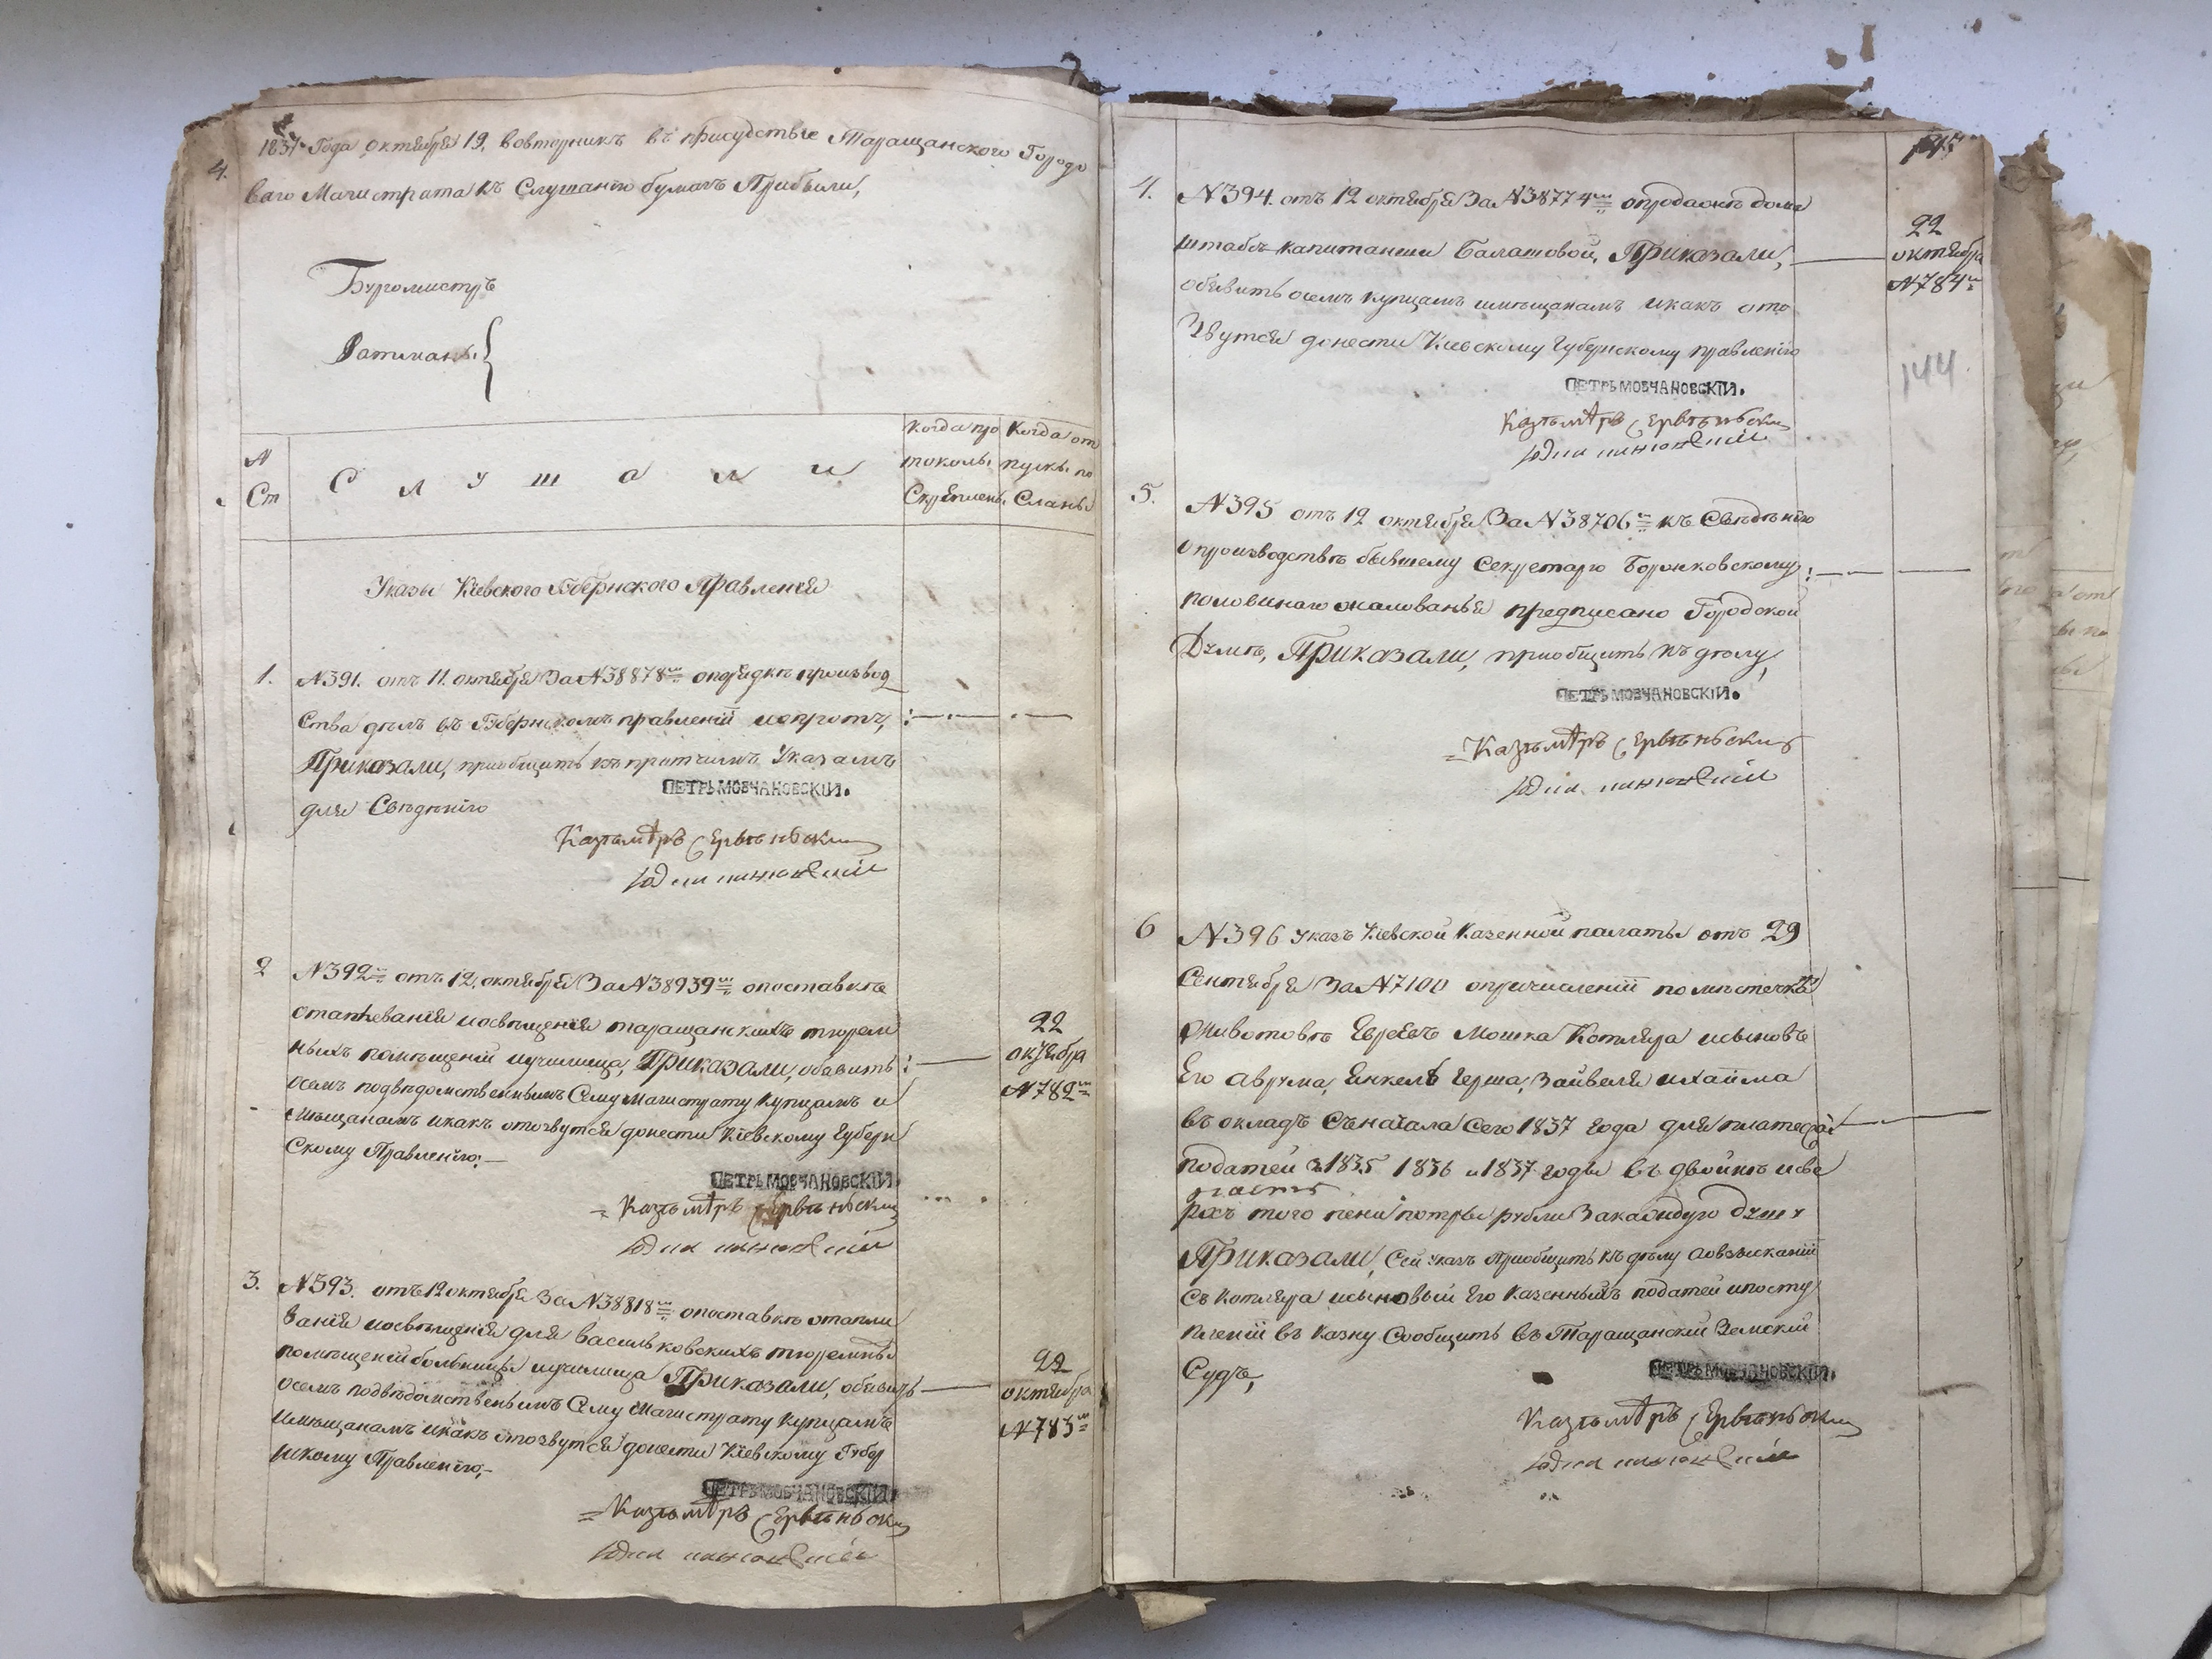 4.
1837 Года октября 19, вовторникъ въ присудствіе Таращанского Городо
ваго Магистрата къ Слушанію бумагъ Прибыли,
Бургомистръ
Ратманы
N
Ст
С л у ш а л и
Когда про
токолы
Скреплены
Когда от
пуски по
Сланы
Указы Кіевского Губернского Правленія
1. N391. отъ 11. октября За N38878 опорядкѣ производ
Ства дѣлъ въ Губернскомъ правленій
Приказали, приобщить къ протчимъ Указамъ
для Свѣденію
ПЕТРЬ МОВЧАНОВСКІЙ.
2 N392 отъ 12. октября За N38939 опоставкѣ
отапливанія иосвѣщенія таращанскихъ тюрем
ныхъ помѣщеній иучилища, Приказали, обявить
осемъ подвѣдомственнымъ Сему Магистрату Купцамъ и
Мѣщанамъ икакъ отозвутся донести Кіевскому Губерн
Скому Правленію;
22
октября
N782
ПЕТРЬ МОВЧАНОВСКІЙ.
3. N393. отъ 12 октября За N38818 опоставкѣ отапли
ванія иосвѣщенія для васильковскихъ тюремны
помѣщеній больницы иучилища Приказали, обявить
осемъ подвѣдомственымъ Сему Магистрату Купцамъ
имѣщанамъ икакъ отозвутся донести Кіевскому Губер
Правленію;
22
октября
N783
ПЕТРЬ МОВЧАНОВСКІЙ.
144.
4. N394. отъ 12 октября За N38774 опродажѣ дома
штабсъ капитанши Балашовой, Приказали,
обявить осемъ купцамъ имѣщанамъ икакъ ото
Звутся донести Кіевскому Губернскому правленію
22
октября
N784
ПЕТРЬ МОВЧАНОВСКІЙ.
5. N395 отъ 12 октября За N38706 къ Свѣдѣнію
опроизводствѣ бывшему Секретарю Боронковскому
половинаго жалованья предписано Городской
Думѣ, Приказали, приобщить къ дѣлу,
ПЕТРЬ МОВЧАНОВСКІЙ.
6 N396 указъ Кіевской Казенной палаты отъ 29
Сентября За N7100 опричисленій по мѣстечк
Животовѣ Евреевъ Мошка Котляра исыновъ
Его Аврума, Янкеля Герша, Зайвеля иХаима
въ окладъ Съначала Сего 1837 года для платежа
податей 1835 1836 и 1837 годы въ двойнѣ исве
рхъ того пени потры рубли Закаждую душу
Приказали, Сей указъ Приобщить къ дѣлу овзысканій
Съ Котляра исыновьй Его Казенныхъ податей ипосту
пленій въ Казну Сообщить въ Таращанскій Земскій
Судъ,
ПЕТРЬ МОВЧАНОВСКІЙ.